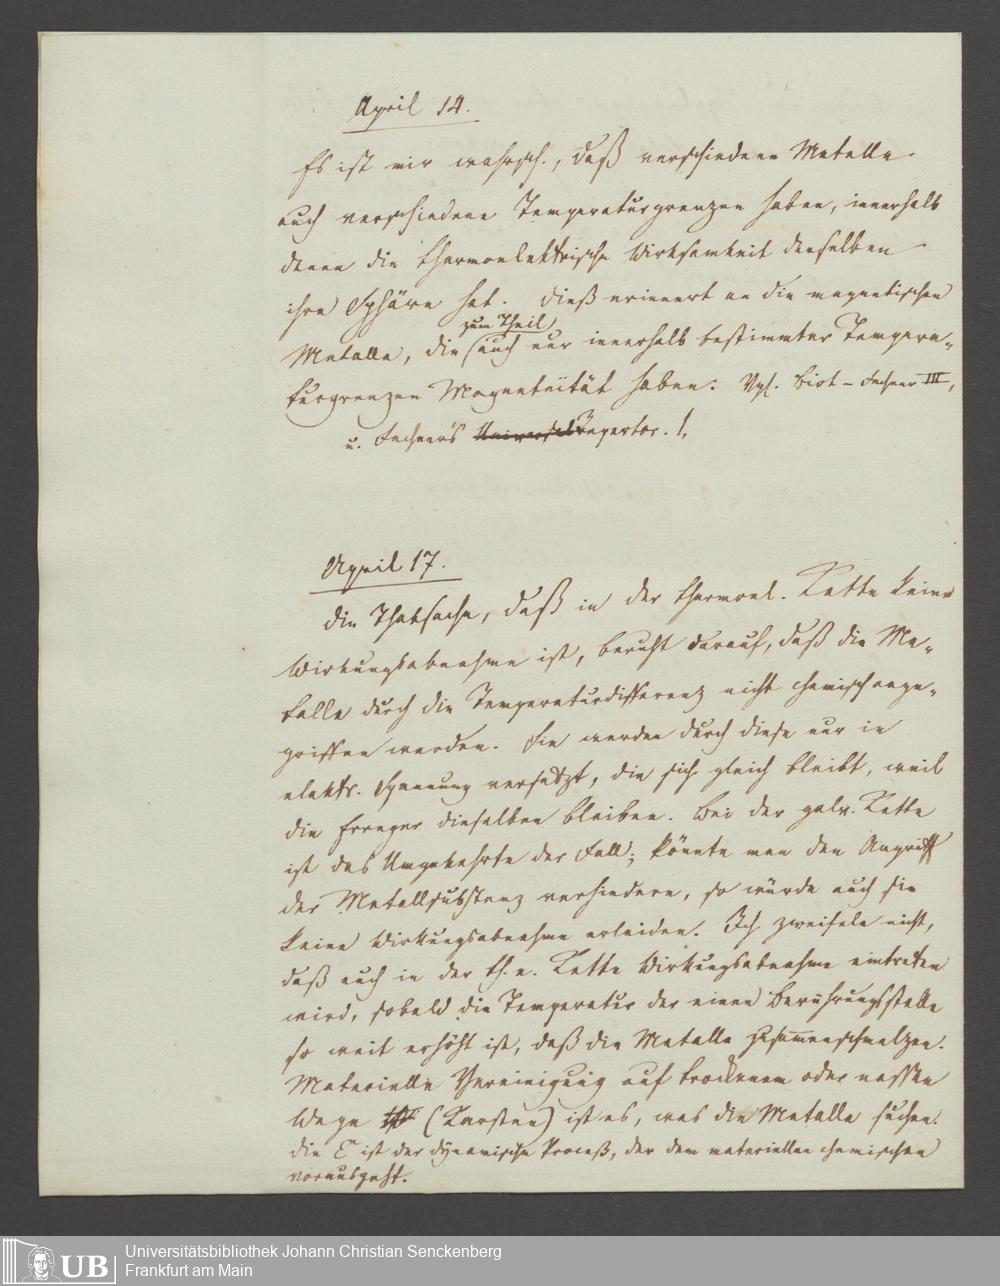 April 14.
Es ist mir wahrsch., daß verschiedene Metalle
auch verschiedene Temperaturgrenzen haben, innerhalb
denen die thermoelektrische Wirksamkeit derselben
ihre Sphäre hat. Dieß erinnert an die magnetischen
zum Theil
Metalle, die auch nur innerhalb bestimmter Tempera-
turgrenzen Magneteität haben. Vgl. Biot - Fechner III,
u. Fechner's Universal Repertor. I.
April 17.
Die Thatsache, daß in der thermoel. Kette keine
Wirkungsabnahme ist, beruht darauf, daß die Me-
talle durch die Temperaturdifferenz nicht chemisch ange-
griffen werden. Sie werden durch diese nur in
elektr. Spannung versetzt, die sich gleich bleibt, weil
die Erreger dieselben bleiben. Bei der galv. Kette
ist das Umgekehrte der Fall; könnte man den Angriff
der Metallsubstanz verhindern, so würde auch sie
keine Wirkungsabnahme erleiden. Ich zweifele nicht,
daß auch in der th. e. Kette Wirkungsabnahme eintreten
wird, sobald die Temperatur der einen Berührungsstelle
so weit erhöht ist, daß die Metalle zusammenschmelzen.
Materielle Vereinigung auf trockenem oder nassen
Wege (Karsten) ist es, was die Metalle suchen.
Die E ist der dynamische Proceß, der dem materiellen chemischen
vorausgeht.
Universitätsbibliothek Johann Christian Senckenberg
Frankfurt am Main
UB